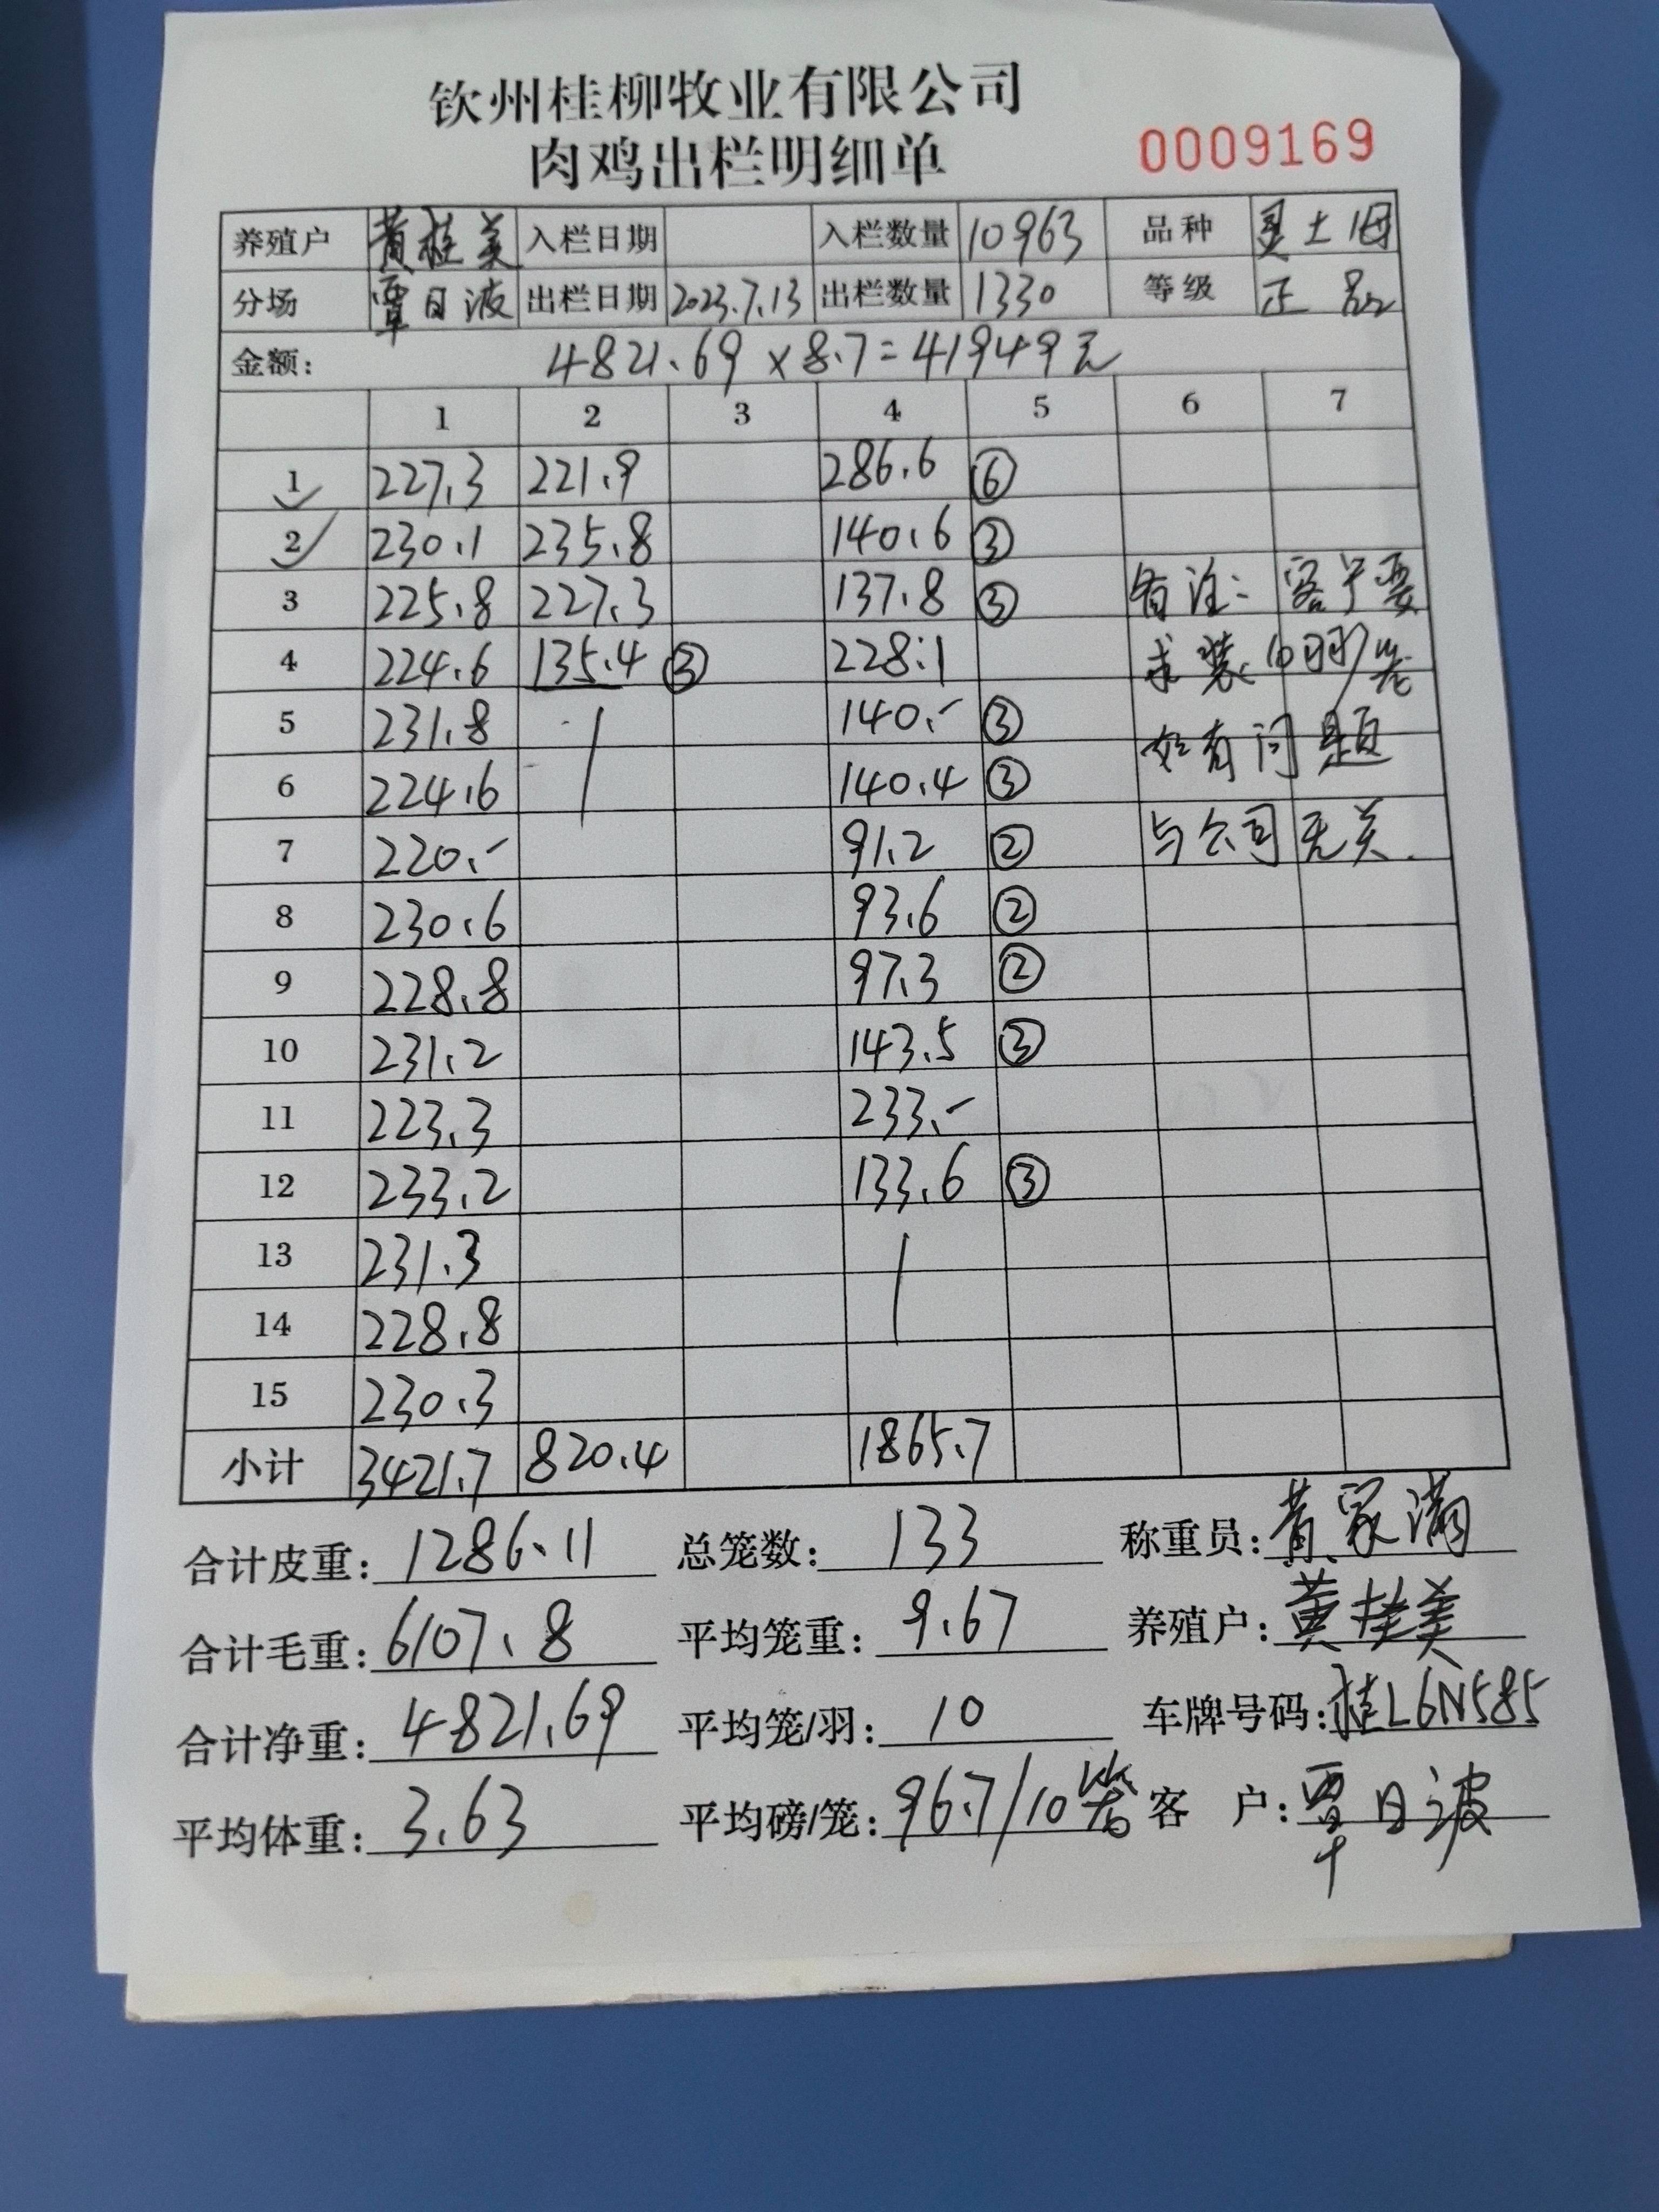 钦州桂柳牧业有限公司
肉鸡出栏明细单
0009169
养殖户 黄桂美 入栏日期 入栏数量 10963 品种 土
分场 覃日波 出栏日期 2023.7.13 出栏数量 1330 等级 正品
金额: 4821.69×8.7=41949元
1 2 3 4 5 6 7
1 227.3 221.9 286.6 ⑥
2 230.1 235.8 140.6 ③
3 225.8 227.3 137.8 ③ 备注: 客户要
4 224.6 135.4 ③ 228.1 求装10羽/笼
5 231.8 140.- ③
6 224.6 140.4 ③ 如有问题
7 220.- 91.2 ② 与公司无关.
8 230.6 93.6 ②
9 228.8 97.3 ②
10 231.2 143.5 ③
11 223.3 233.-
12 233.2 133.6 ③
13 231.3
14 228.8
15 230.3
小计 3421.7 820.4 1865.7
合计皮重: 1286.11 总笼数: 133 称重员: 黄家满
合计毛重: 6107.8 平均笼重: 9.67 养殖户: 黄桂美
合计净重: 4821.69 平均笼/羽: 10 车牌号码: 桂L6N585
平均体重: 3.63 平均磅/笼: 96.7/10 客 户: 覃日波